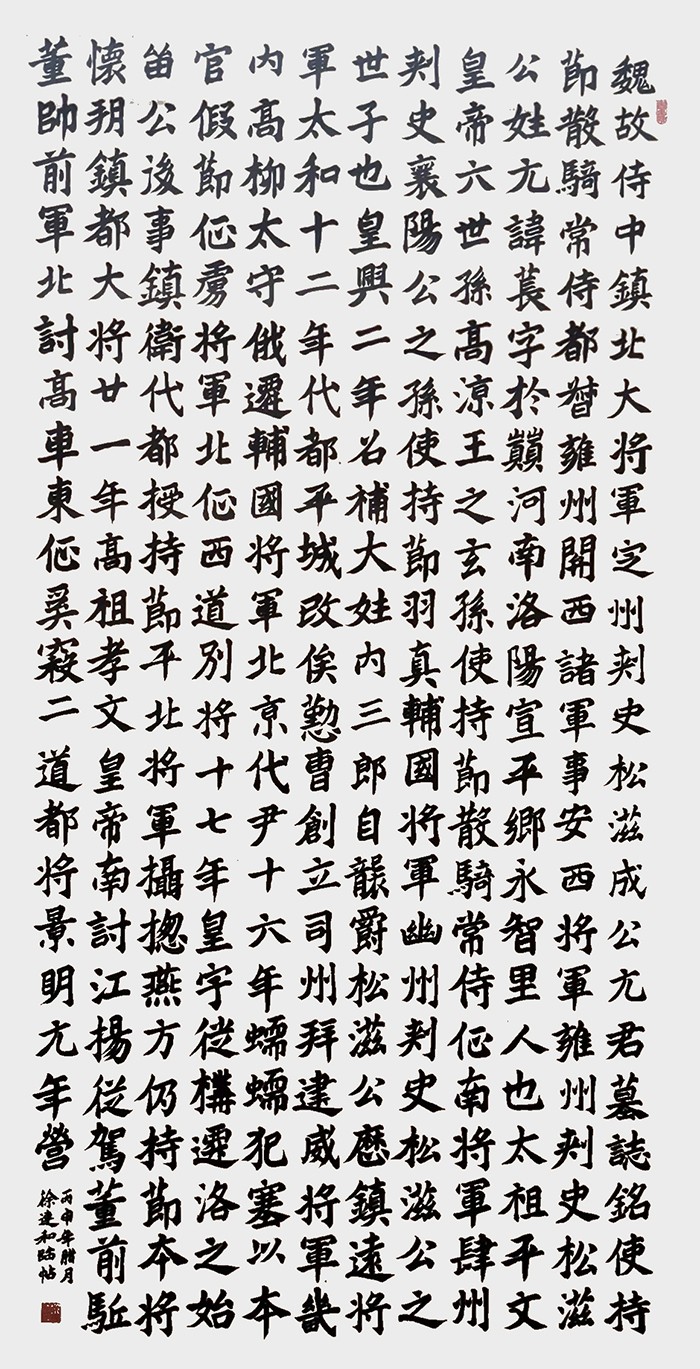 魏故侍中鎮北大将軍定州刾史松滋成公元君墓誌銘使持
節散騎常侍都督雍州開西諸軍事安西将軍雍州刾史松滋
公姓元諱萇字於巔河南洛陽宣平鄉永智里人也太祖平文
皇帝六世孫高涼王之玄孫使持節散騎常侍征南将軍肆州
刾史襄陽公之孫使持節羽真輔國将軍幽州刾史松滋公之
世子也皇興二年名補大姓内三郎自襲爵松滋公歷鎮遠将
軍太和十二年代都平城改俟懃曹創立司州拜建威将軍畿
内高柳太守俄遷輔國将軍北京代尹十六年蠕蠕犯塞以本
官假節征虜将軍北征西道別将十七年皇宇徙構遷洛之始
留公後事鎮衛代都授持節平北将軍攝揔燕方仍持節本将
懷朔鎮都大将廿一年高祖孝文皇帝南討江揚從駕董前駈
董帥前軍北討高車東征奚寇二道都将景明元年營
丙申年腊月
徐建和臨帖